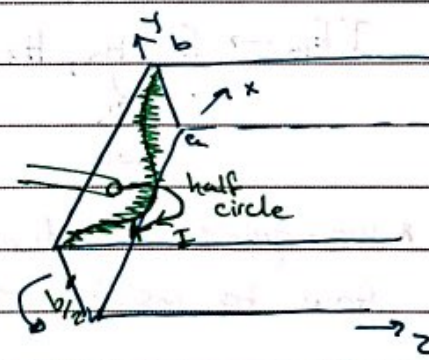 y
b
x
a
half
circle
I
b/2
z